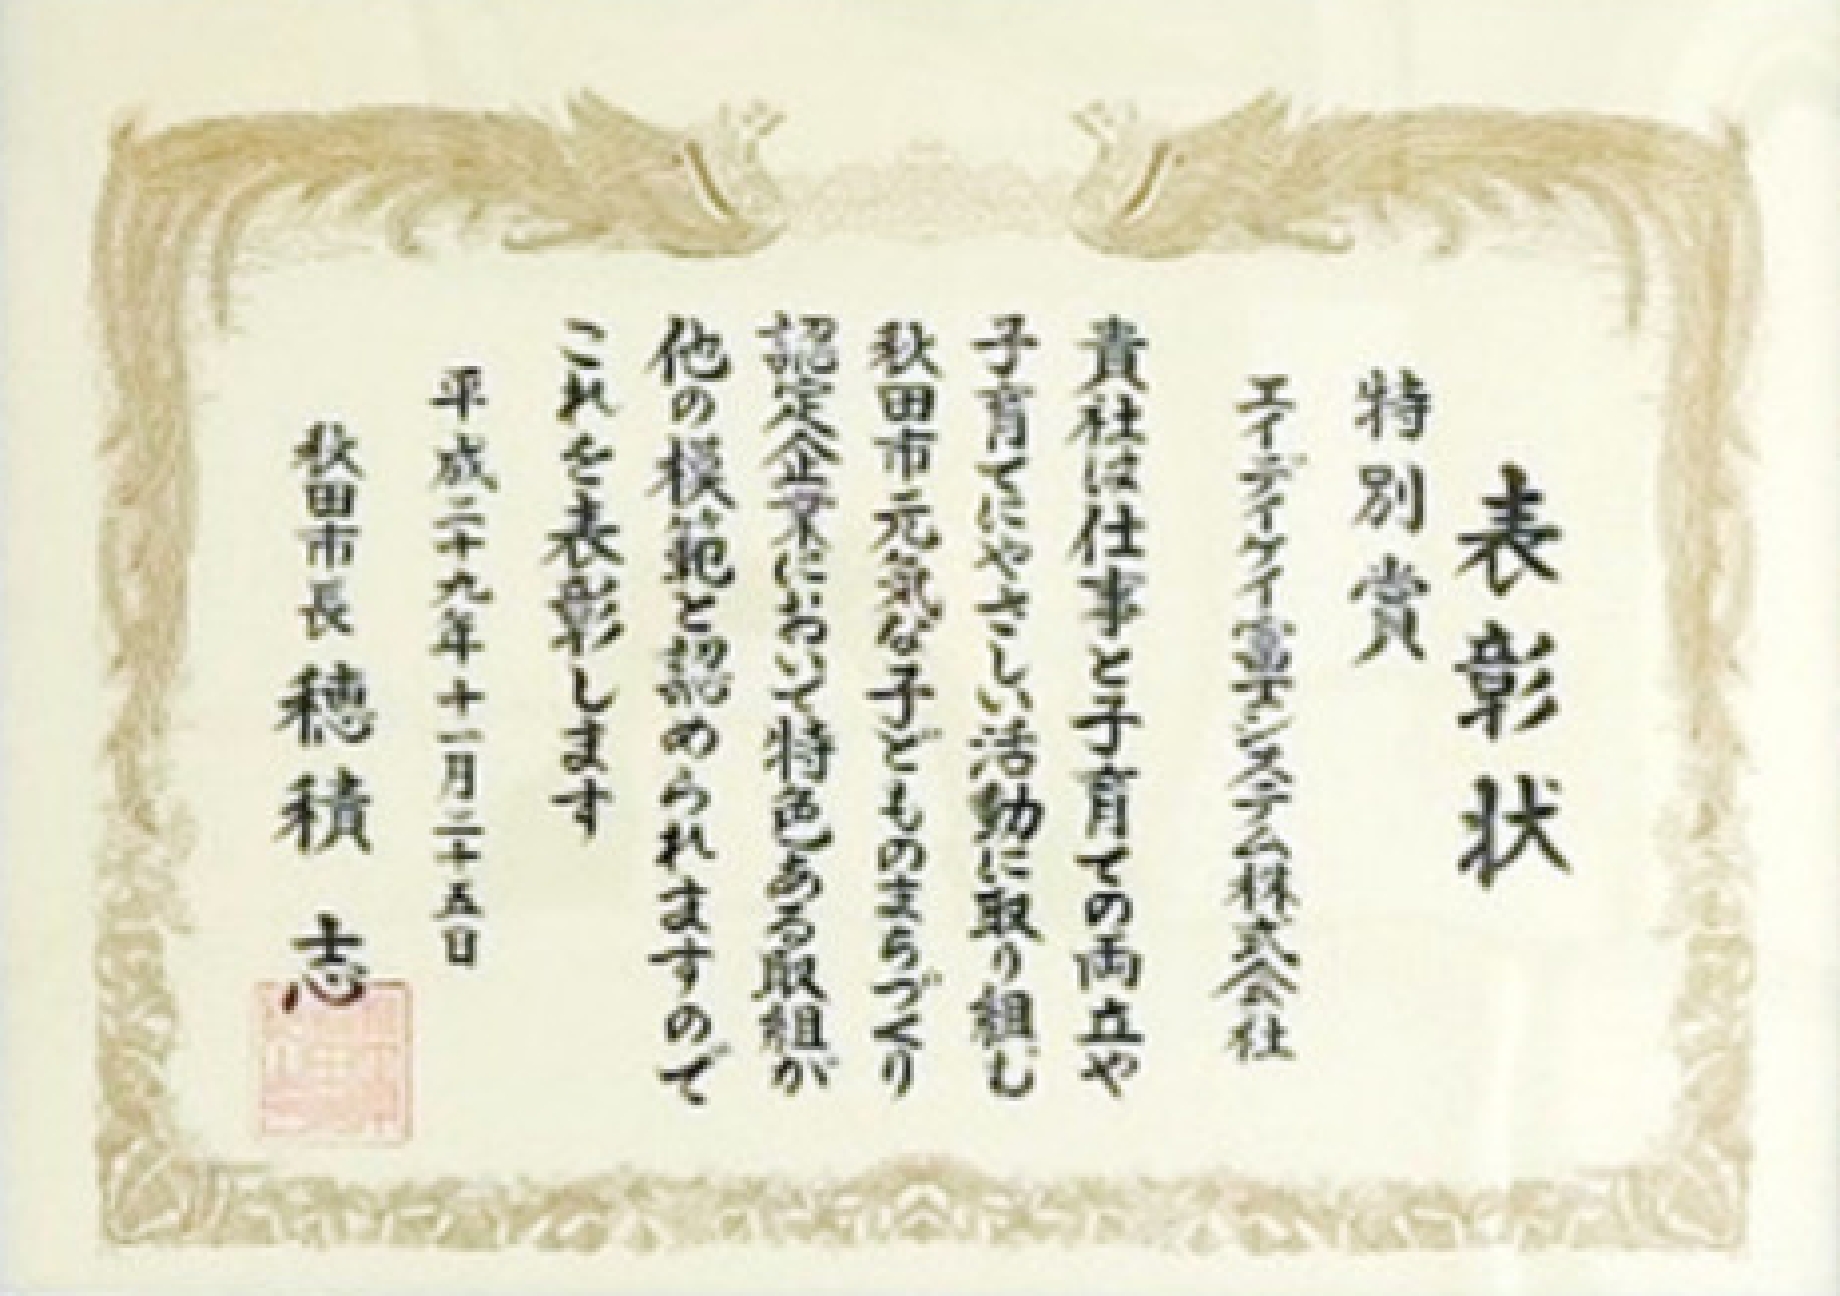 表彰状
特別賞
エイデイケイ富士システム株式会社
貴社は仕事と子育ての両立や
子育てにやさしい活動に取り組む
秋田市元気な子どものまちづくり
認定企業において特色ある取組が
他の模範と認められますので
これを表彰します
平成二十九年十一月二十五日
秋田市長 穂積 志